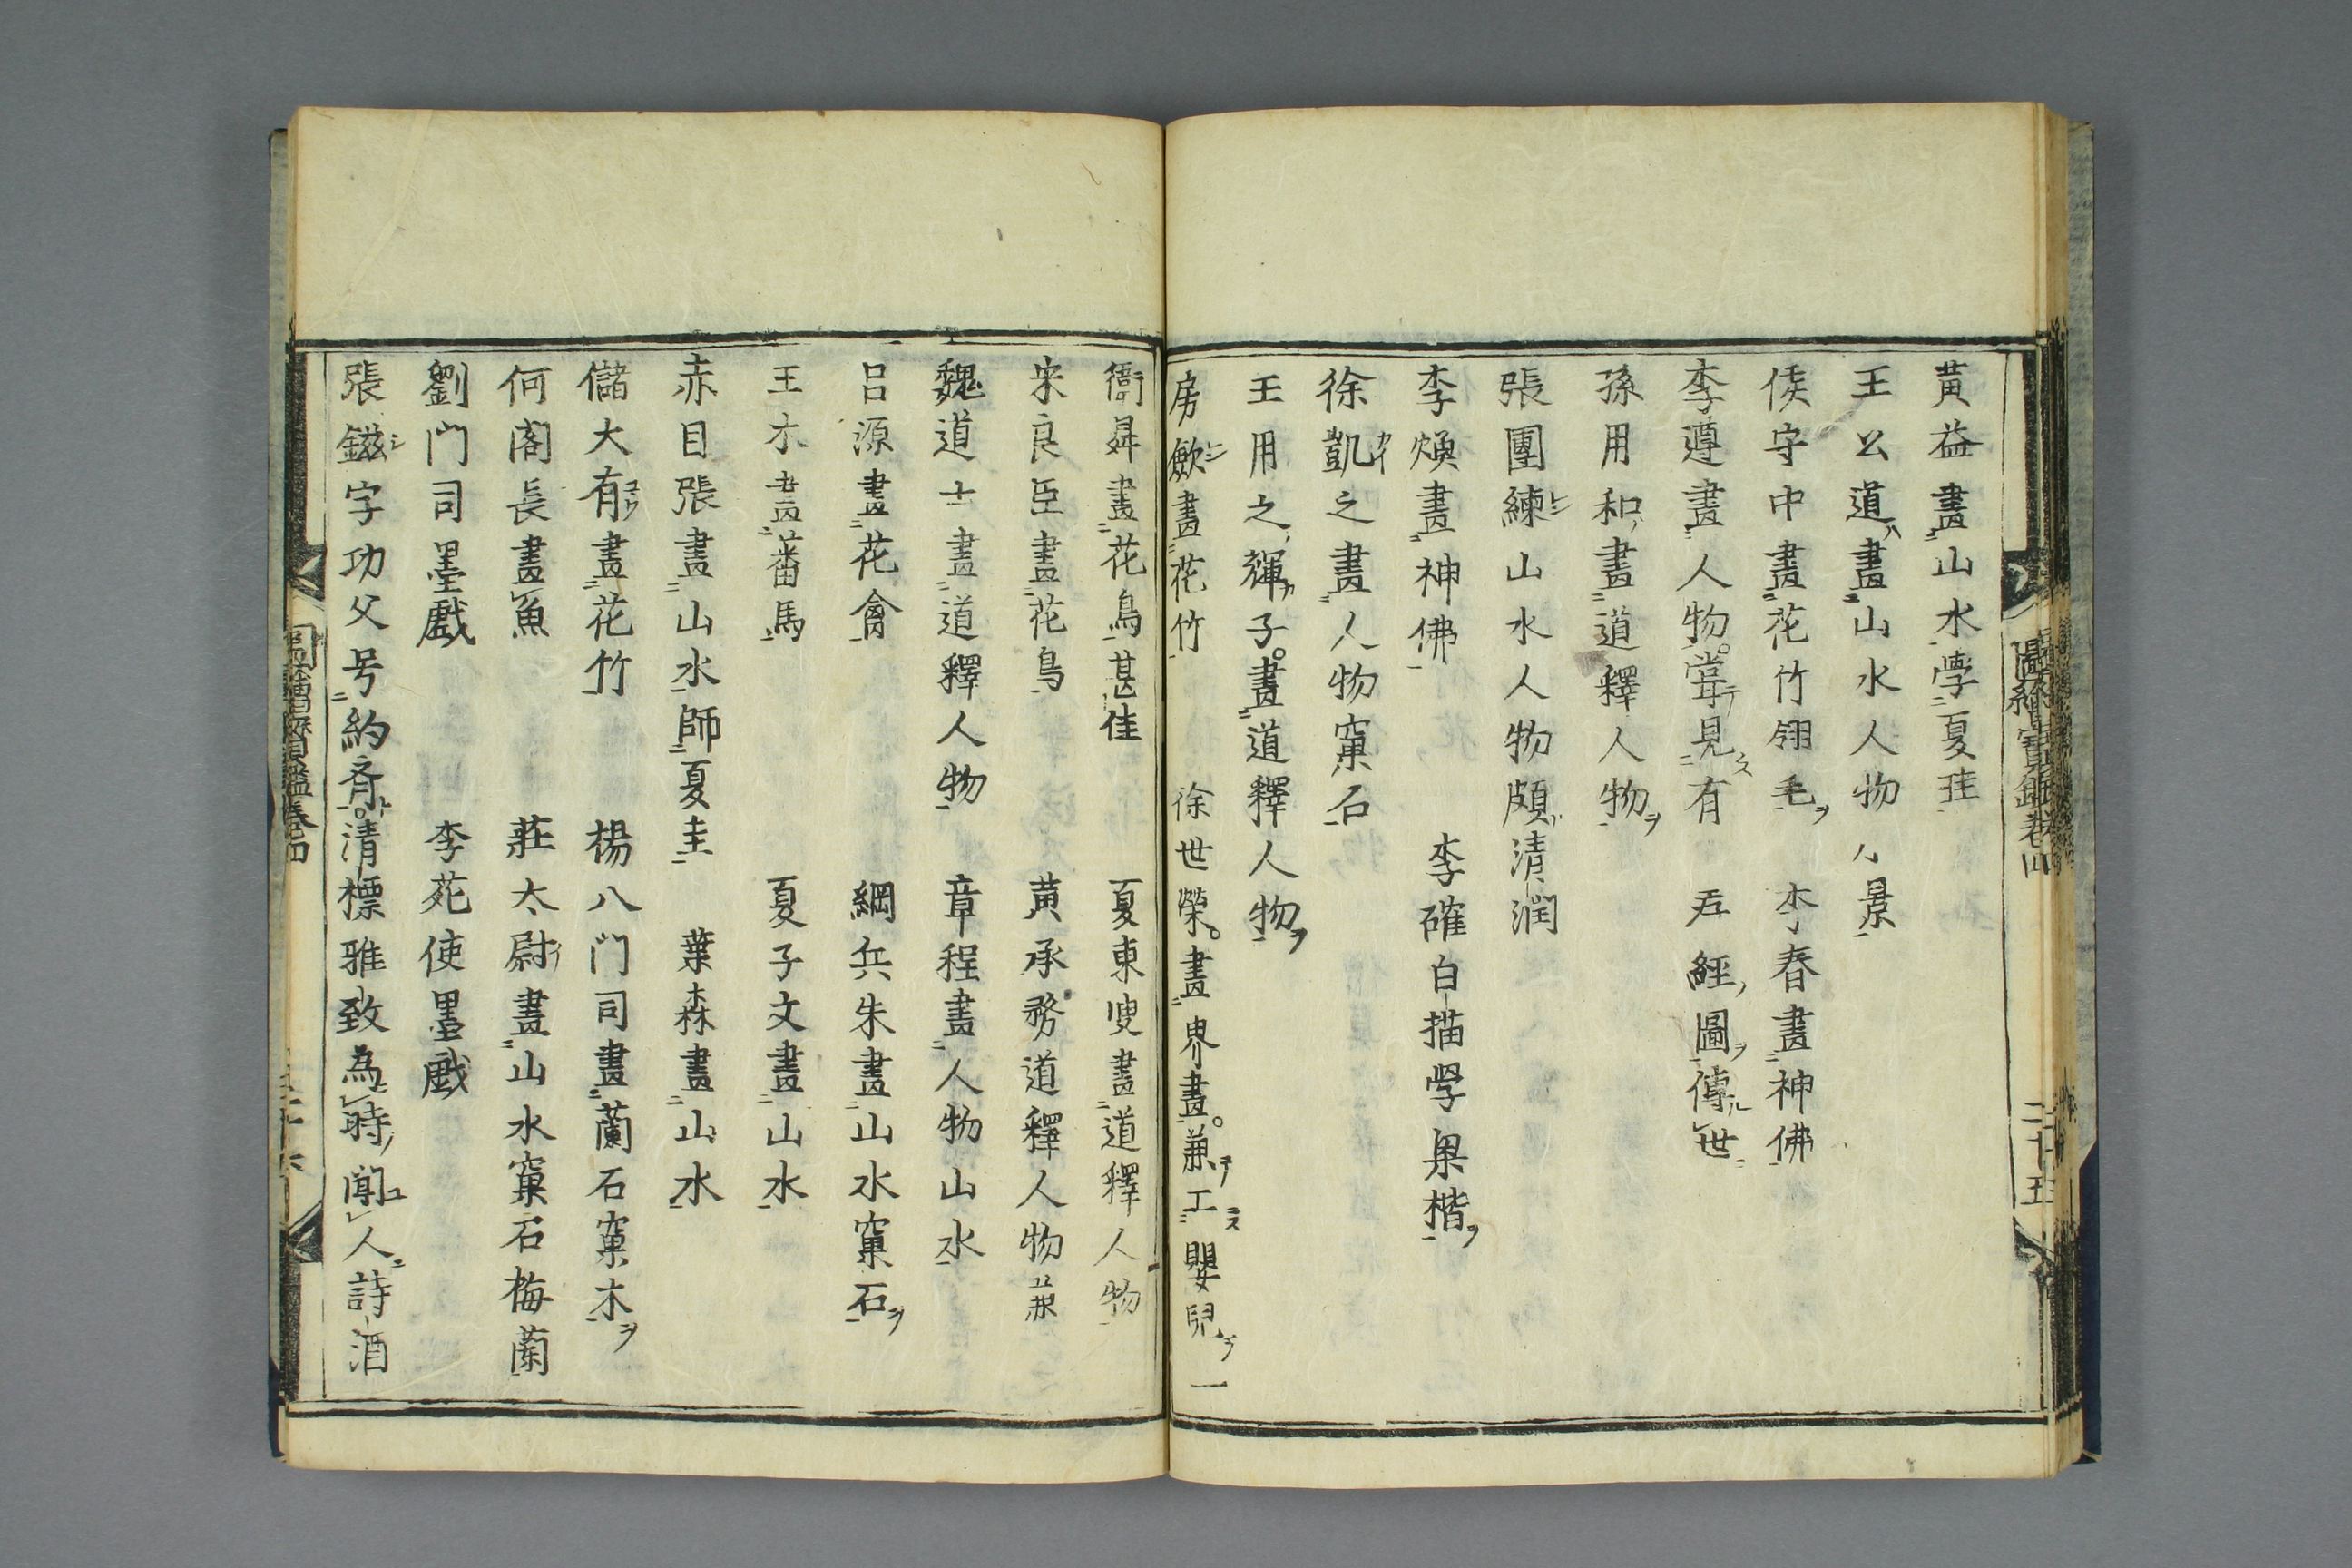 黄益畫山水學夏珪
王公道畫山水人物小景
侯守中畫花竹翎毛　李春畫神佛
李遵畫人物嘗見有君經圖傳世
孫用和畫道釋人物
張團練山水人物頗清潤
李煥畫神佛　李確白描学梁楷
徐凱之畫人物窠石
王用之輝子畫道釋人物
房歟畫花竹　徐世榮畫界畫兼工嬰兒
圖繪寳鑑卷四　二十五
衛昇畫花鳥甚佳　夏東叟畫道釋人物
宋良臣畫花鳥　黄承務道釋人物兼
魏道士畫道釋人物　章程畫人物山水
吕源畫花禽　綱兵朱畫山水窠石
王木畫蕃馬　夏子文畫山水
赤目張畫山水師夏圭　葉森畫山水
儲大有畫花竹　楊八门司畫蘭石窠木
何閣長畫魚　莊太尉畫山水窠石梅蘭
劉门司墨戲　李苑使墨戯
張鎡字功父号約斉清標雅致為時聞人詩酒
圖繪寳鑑卷四　二十六